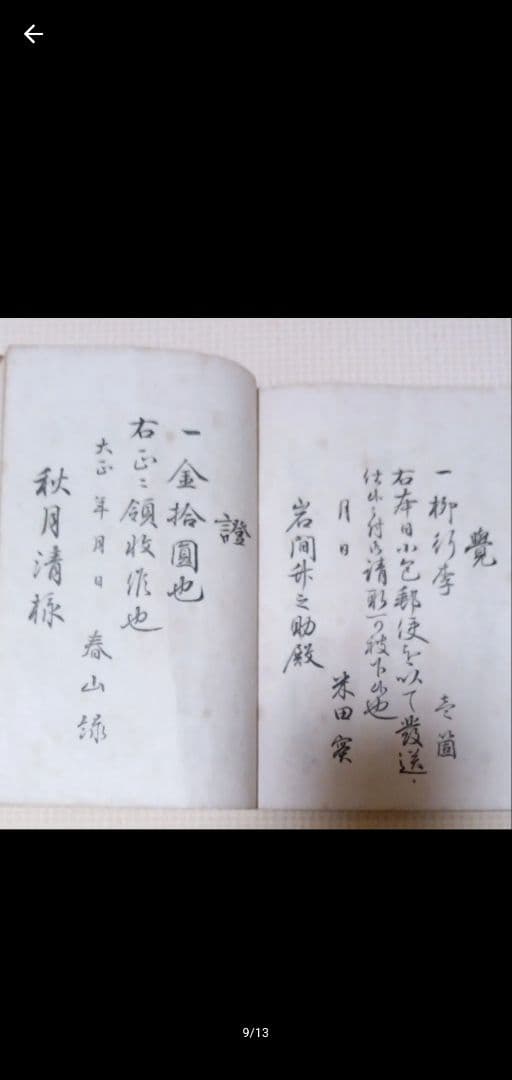 覺
一 柳行李 壱箇
右本日小包郵便を以て發送
仕候ニ付御請取可被下候也
月 日
米田實
岩間舛之助殿
證
一金拾圓也
右正ニ領收候也
大正 年 月 日
春山
秋月清様
9/13